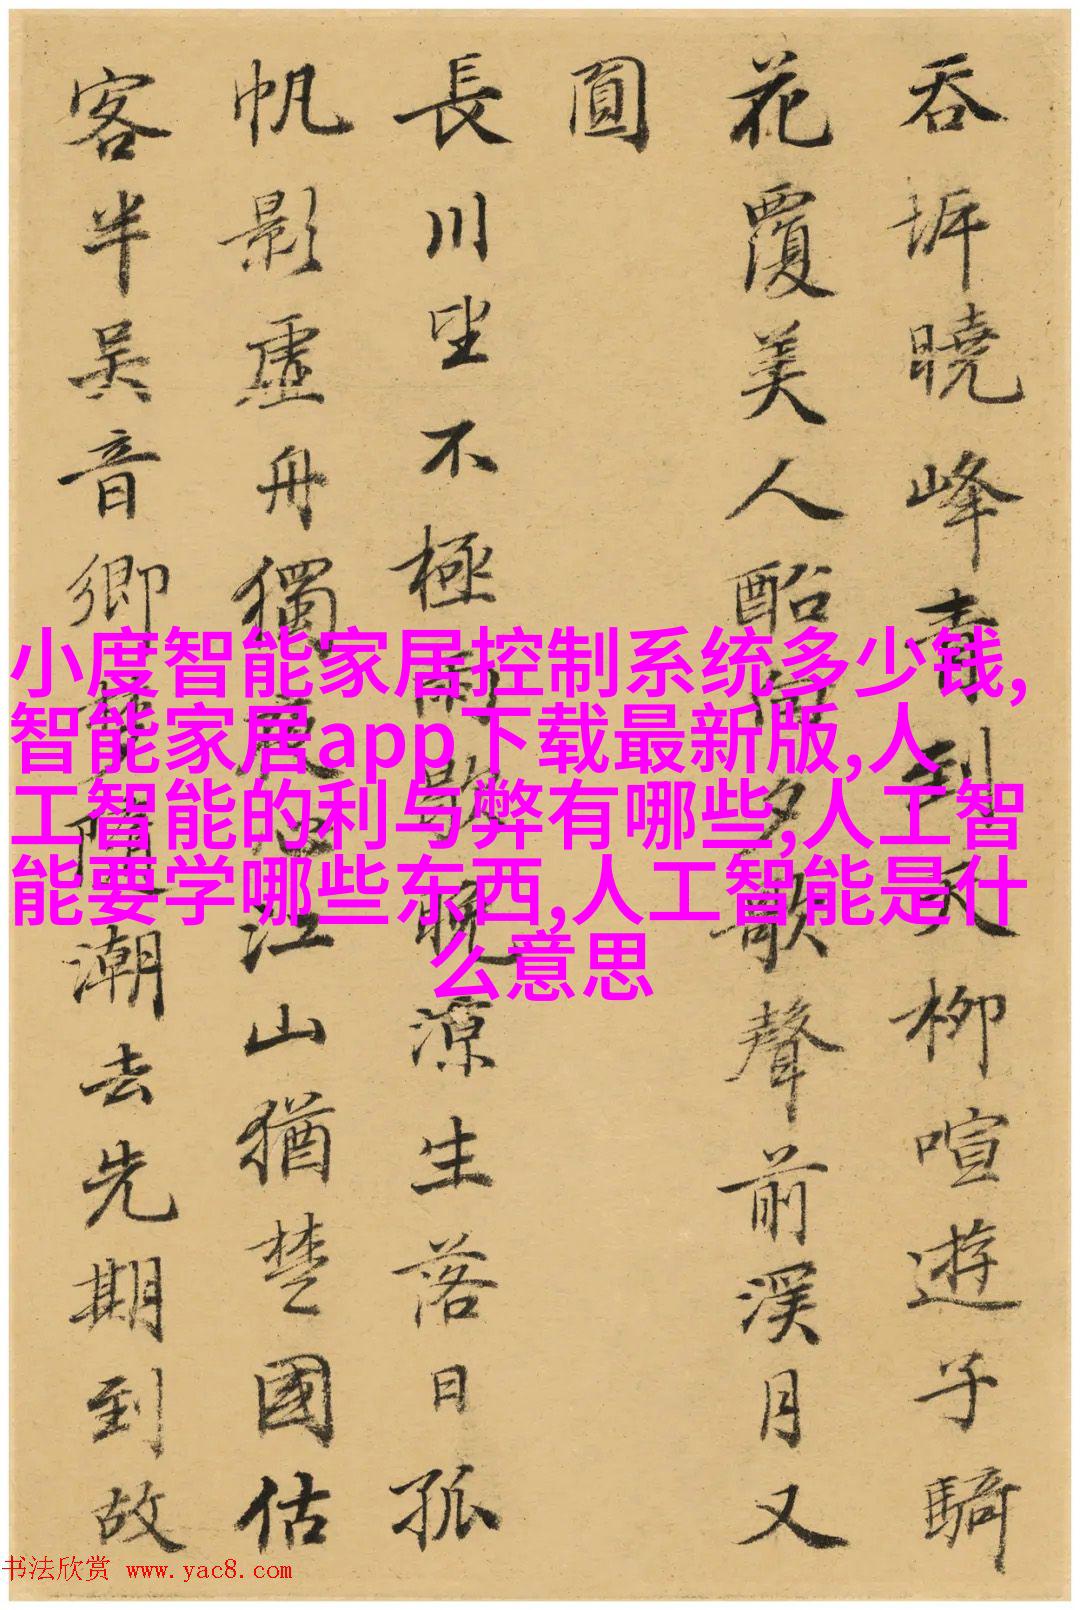 吞㘭曉峰青到天柳喧遊子騎
花覆美人酣向夕歌聲前溪月又
圓
長川坐不極
晚涼生落日孤
帆影虛舟獨
江山猶楚國估
客半吴音鄉
潮去先期到故
小度智能家居控制系统多少钱,
智能家居app下载最新版,人
工智能的利与弊有哪些,人工智
能要学哪些东西,人工智能是什
么意思
书法欣赏 www.yac8.com